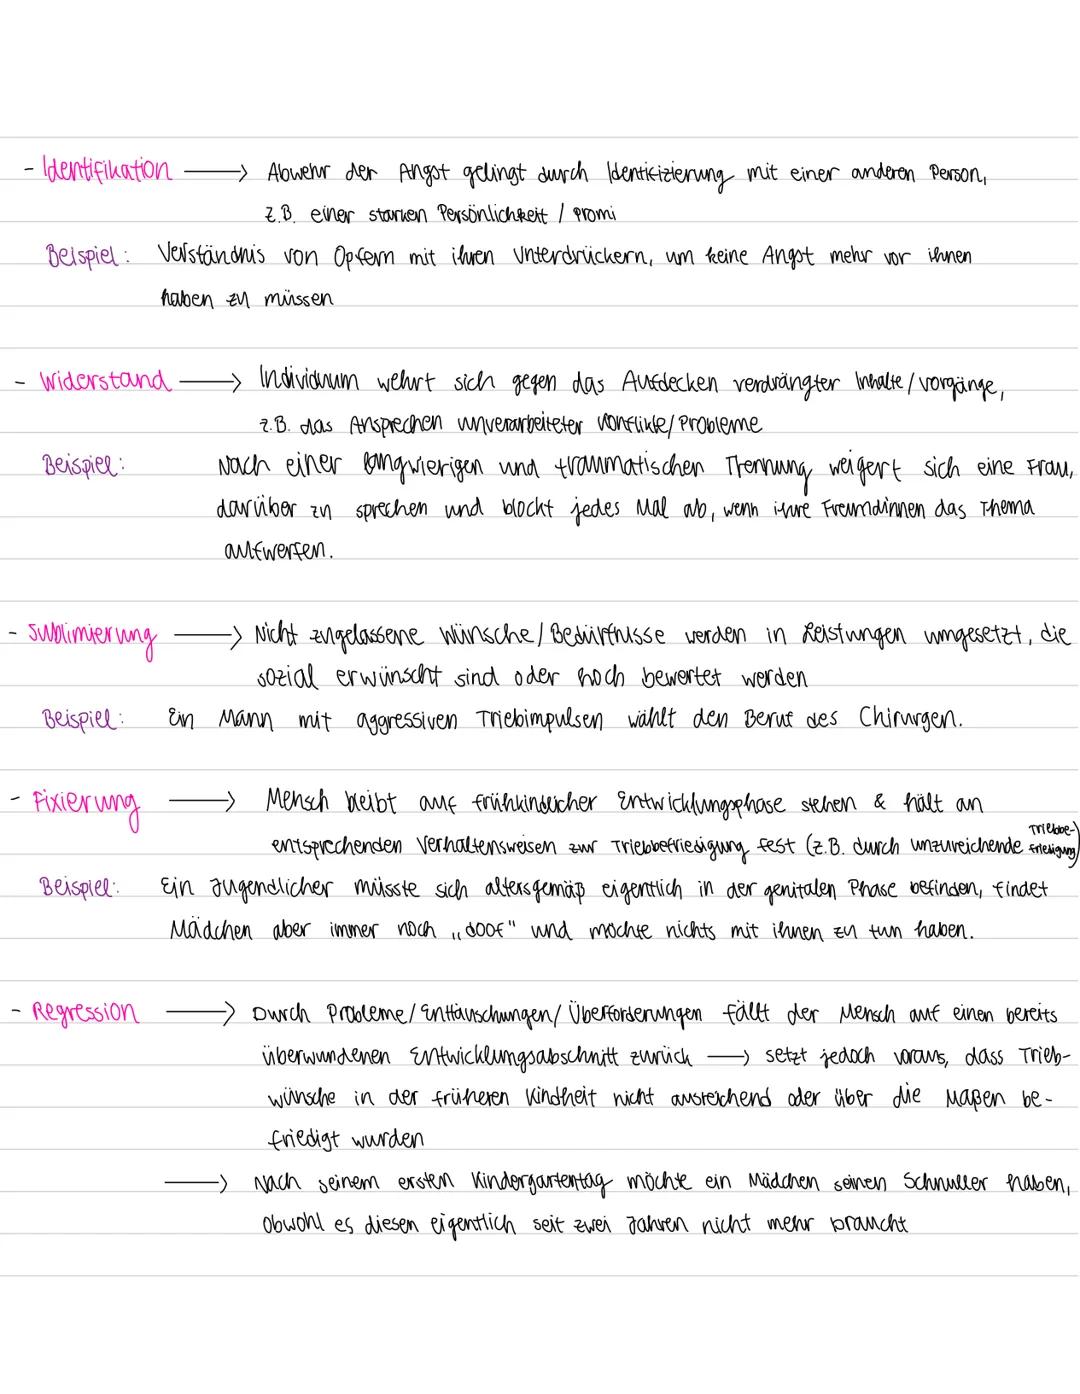 - Identifikation → Abwehr der Angst gelingt durch Identifizierung mit einer anderen Person,
z.B. einer starken Persönlichkeit / Promi
Beispiel: Verständnis von Opfern mit ihren Unterdrückern, um keine Angst mehr vor ihnen
haben zu müssen
- Widerstand → Individuum wehrt sich gegen das Aufdecken verdrängter Inhalte/Vorgänge,
z.B. das Ansprechen unverarbeiteter Konflikte/Probleme
Beispiel: Nach einer langwierigen und traumatischen Trennung weigert sich eine Frau,
darüber zu sprechen und blockt jedes Mal ab, wenn ihre Freundinnen das Thema
aufwerfen.
- Sublimierung → Nicht zugelassene Wünsche/Bedürfnisse werden in Leistungen umgesetzt, die
sozial erwünscht sind oder hoch bewertet werden
Beispiel: Ein Mann mit aggressiven Triebimpulsen wählt den Beruf des Chirurgen.
- Fixierung → Mensch bleibt auf frühkindlicher Entwicklungsphase stehen & hält an
entsprechenden Verhaltensweisen zur Triebbefriedigung fest (z.B. durch unzureichende Triebbe-
friedigung)
Beispiel: Ein Jugendlicher müsste sich altersgemäß eigentlich in der genitalen Phase befinden, findet
Mädchen aber immer noch „doof" und möchte nichts mit ihnen zu tun haben.
- Regression → Durch Probleme/Enttäuschungen/Überforderungen fällt der Mensch auf einen bereits
überwundenen Entwicklungsabschnitt zurück → setzt jedoch voraus, dass Trieb-
wünsche in der früheren Kindheit nicht ausreichend oder über die Maßen be-
friedigt wurden
→ Nach seinem ersten Kindergartentag möchte ein Mädchen seinen Schnuller haben,
obwohl es diesen eigentlich seit zwei Jahren nicht mehr braucht